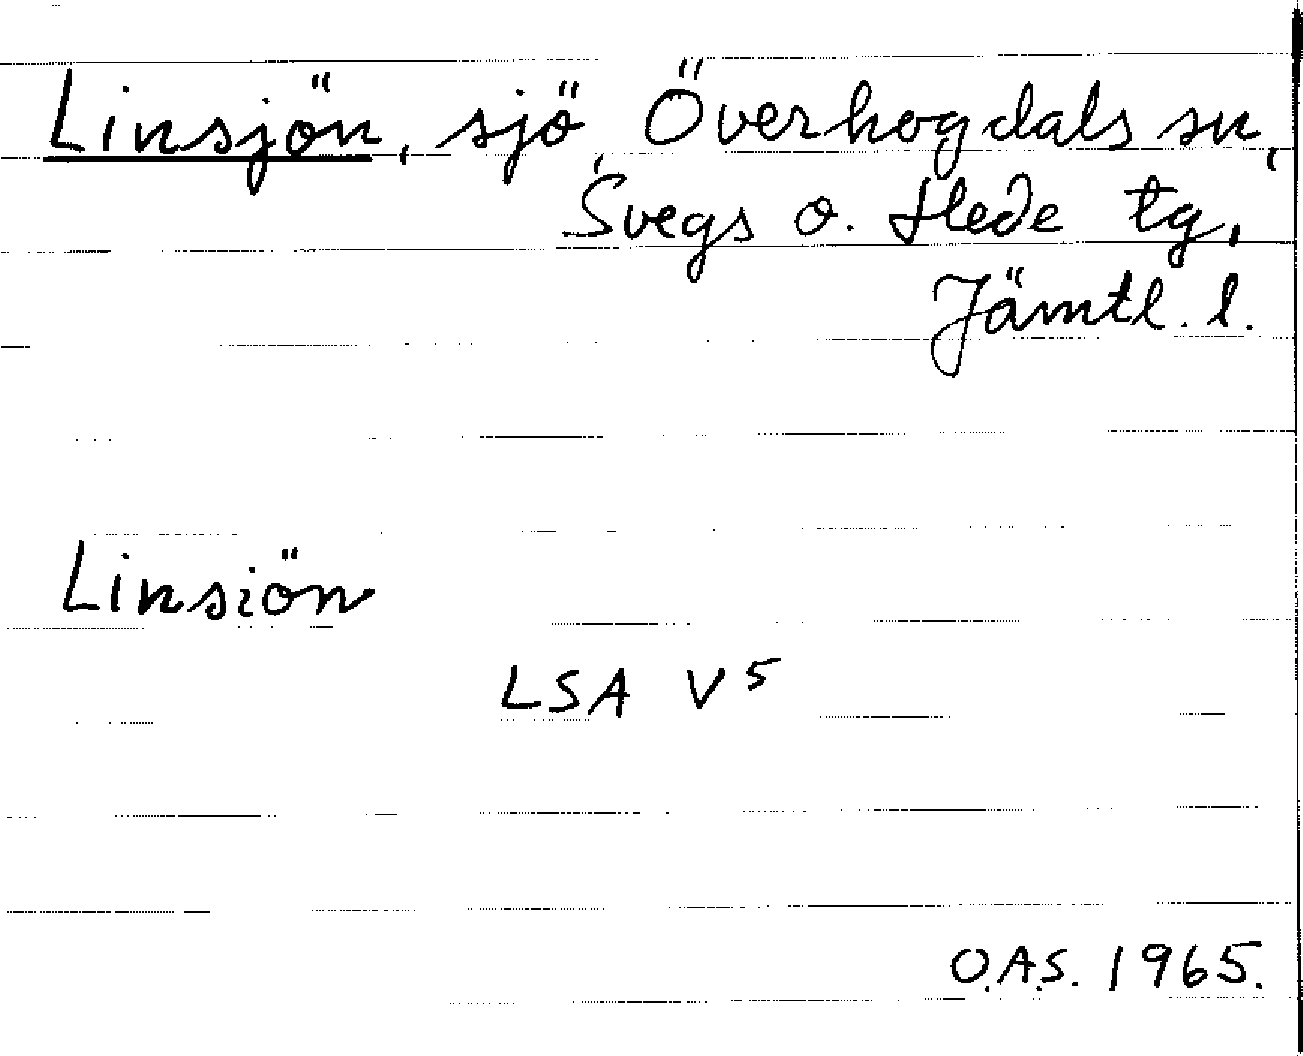 Linsjön, sjö, Överhogdals sn,
Svegs o. Hede tg,
Jämtl. l.
Linsiön
LSA V5
O.A.S. 1965.